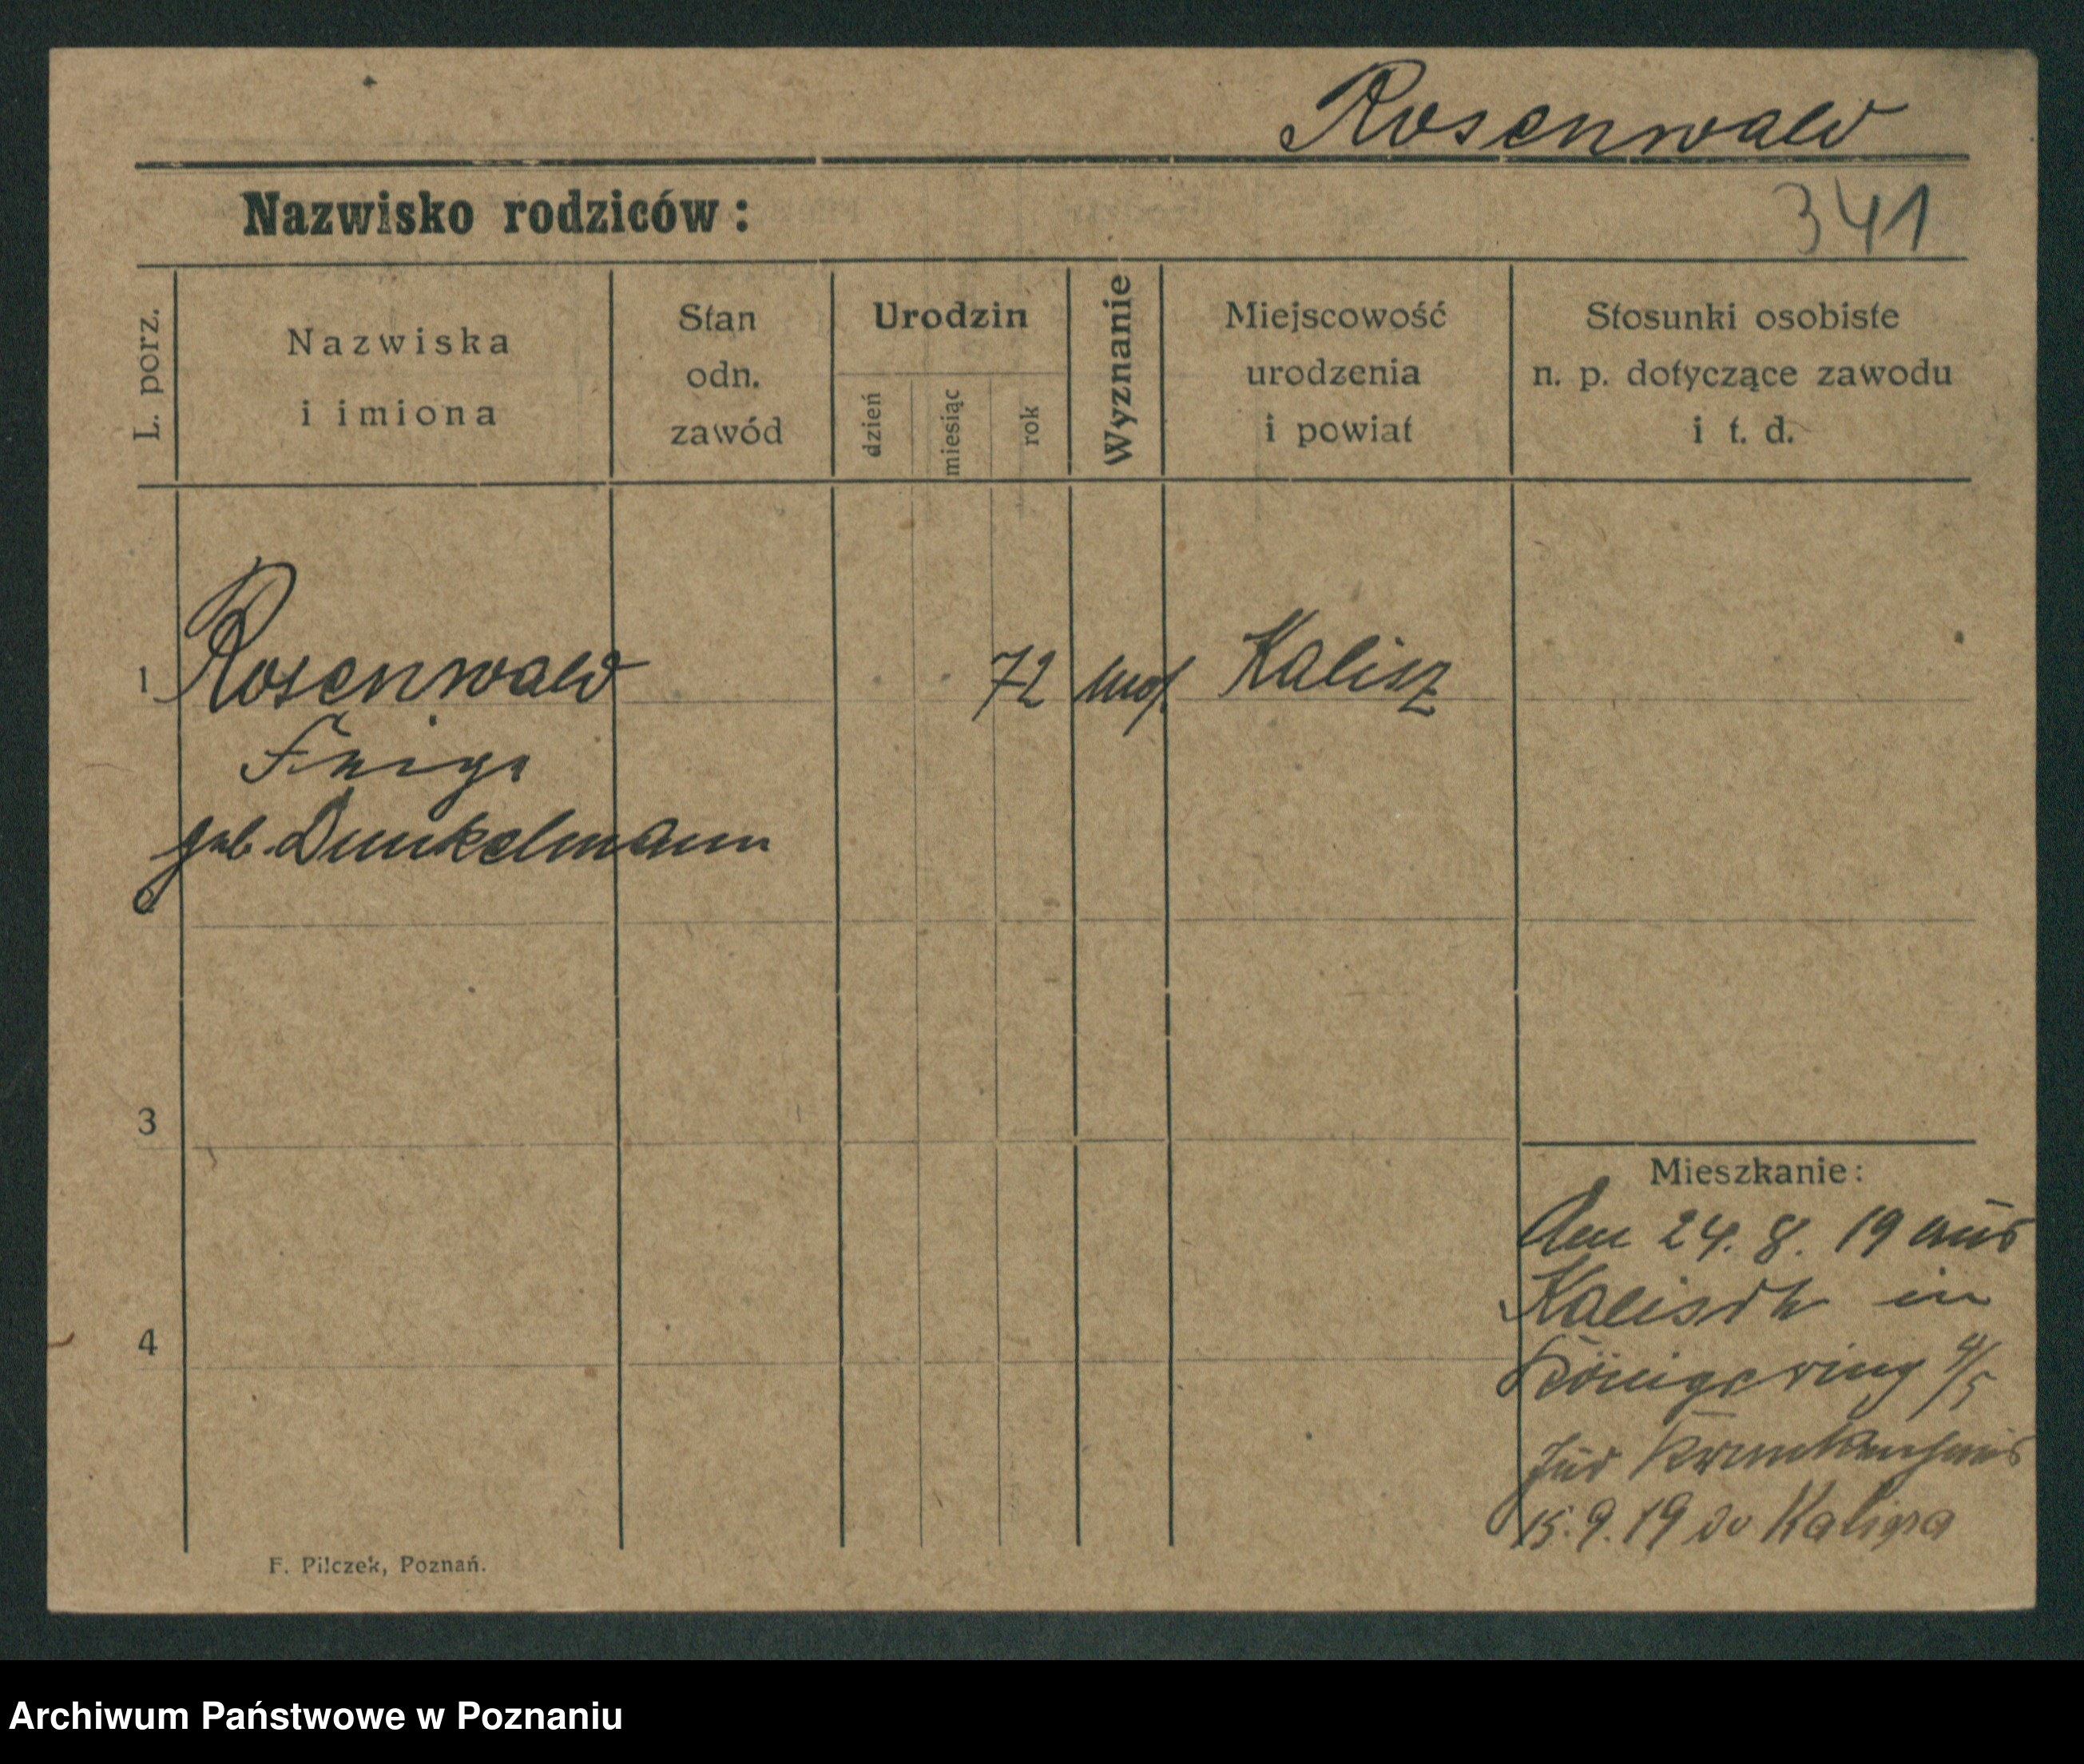 Rosenwald
Nazwisko rodziców:
341
L. porz.
Nazwiska
i imiona
Stan
odn.
zawód
Urodzin
dzień
miesiąc
rok
Wyznanie
Miejscowość
urodzenia
i powiat
Stosunki osobiste
n. p. dotyczące zawodu
i t. d.
1 Rosenwald 72 mos. Kalisz
geb. Dunkelmann
3
4
Mieszkanie:
Am 24. 8. 19 aus
Kalisch in
Königsring 4/5
Jüd Krankenhaus
15. 9. 19 do Kalisza
F. Pilczek, Poznań.
Archiwum Państwowe w Poznaniu